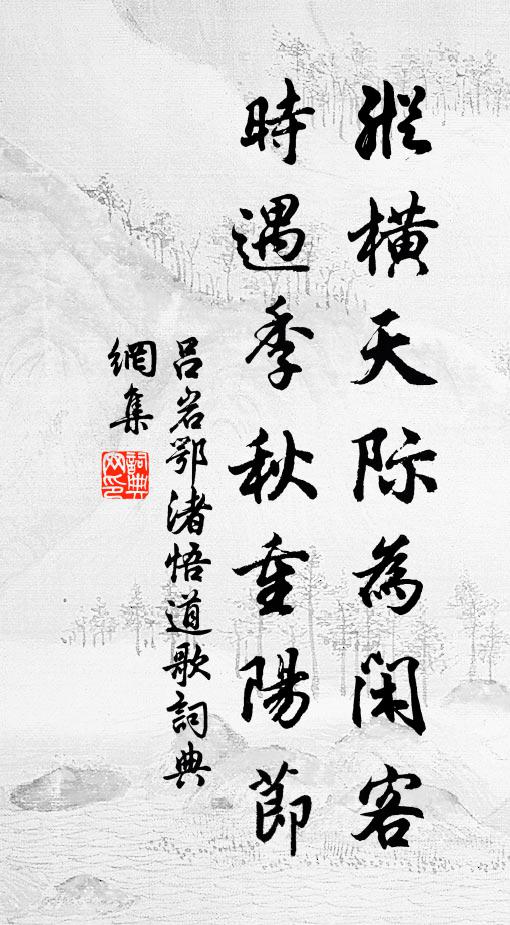 縱橫天际為閑客
時遇季秋重陽節
呂岩鄂渚悟道歌詞典
網集
詞典
网印